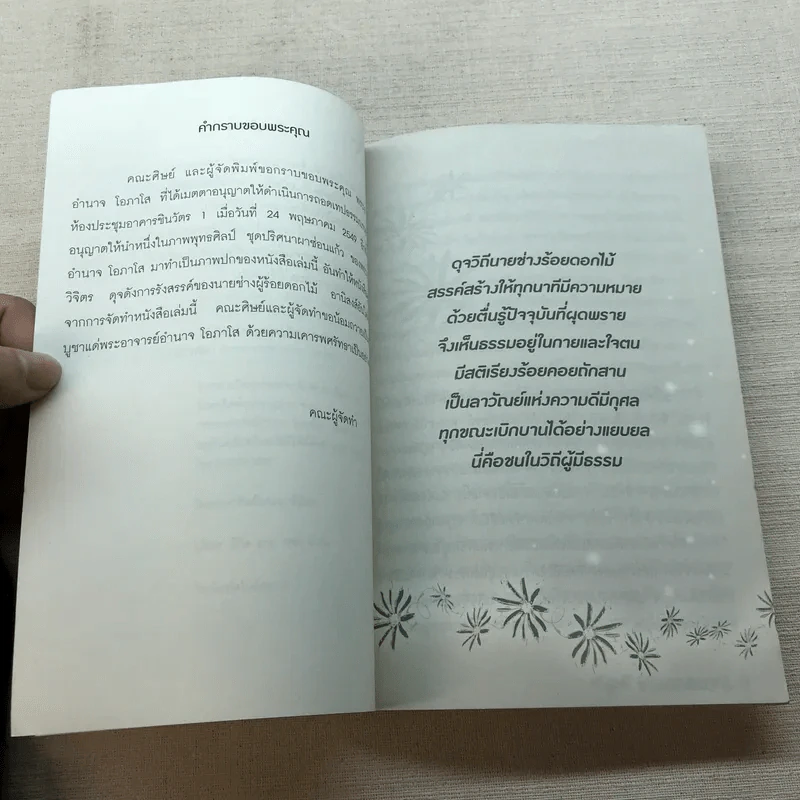 คำกราบขอบพระคุณ
คณะศิษย์ และผู้จัดพิมพ์ขอกราบขอบพระคุณ
อำนาจ โอภาโส ที่ได้เมตตาอนุญาตให้ดำเนินการถอดเทปธรรม
ห้องประชุมอาคารชินวัตร 1 เมื่อวันที่ 24 พฤษภาคม 2549
อนุญาตให้นำหนึ่งในภาพพุทธศิลป์ ชุดปริศนาผาซ่อนแก้ว
อำนาจ โอภาโส มาทำเป็นภาพปกของหนังสือเล่มนี้ อันทำให้หนังสือ
วิจิตร ดุจดังการรังสรรค์ของนายช่างผู้ร้อยดอกไม้ อานิสงส์
จากการจัดทำหนังสือเล่มนี้ คณะศิษย์และผู้จัดทำขอน้อมถวาย
บูชาแด่พระอาจารย์อำนาจ โอภาโส ด้วยความเคารพศรัทธาเป็น
คณะผู้จัดทำ
ดุจวิถีนายช่างร้อยดอกไม้
สรรค์สร้างให้ทุกนาทีมีความหมาย
ด้วยตื่นรู้ปัจจุบันที่ผุดพราย
จึงเห็นธรรมอยู่ในกายและใจตน
มีสติเรียงร้อยคอยถักสาน
เป็นลาวัณย์แห่งความดีมีกุศล
ทุกขณะเบิกบานได้อย่างแยบยล
นี่คือชนในวิถีผู้มีธรรม